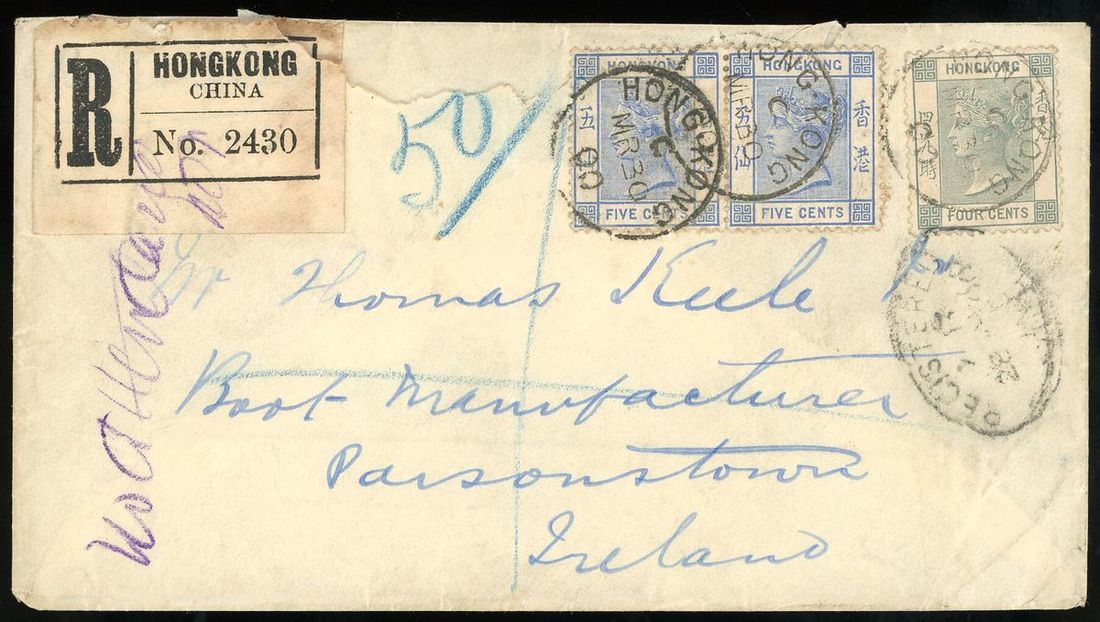 R
HONGKONG
CHINA
No. 2430
50/
HONGKONG
五
FIVE CENTS
HONGKONG
五
香港
FIVE CENTS
HONGKONG
香港
FOUR CENTS
HONG KONG
C
MR 30
00
HONG KONG
C
MR 30
HONG KONG
C
REGISTERED
Mr Thomas Keele
Boot Manufacturer
Parsonstown
Ireland